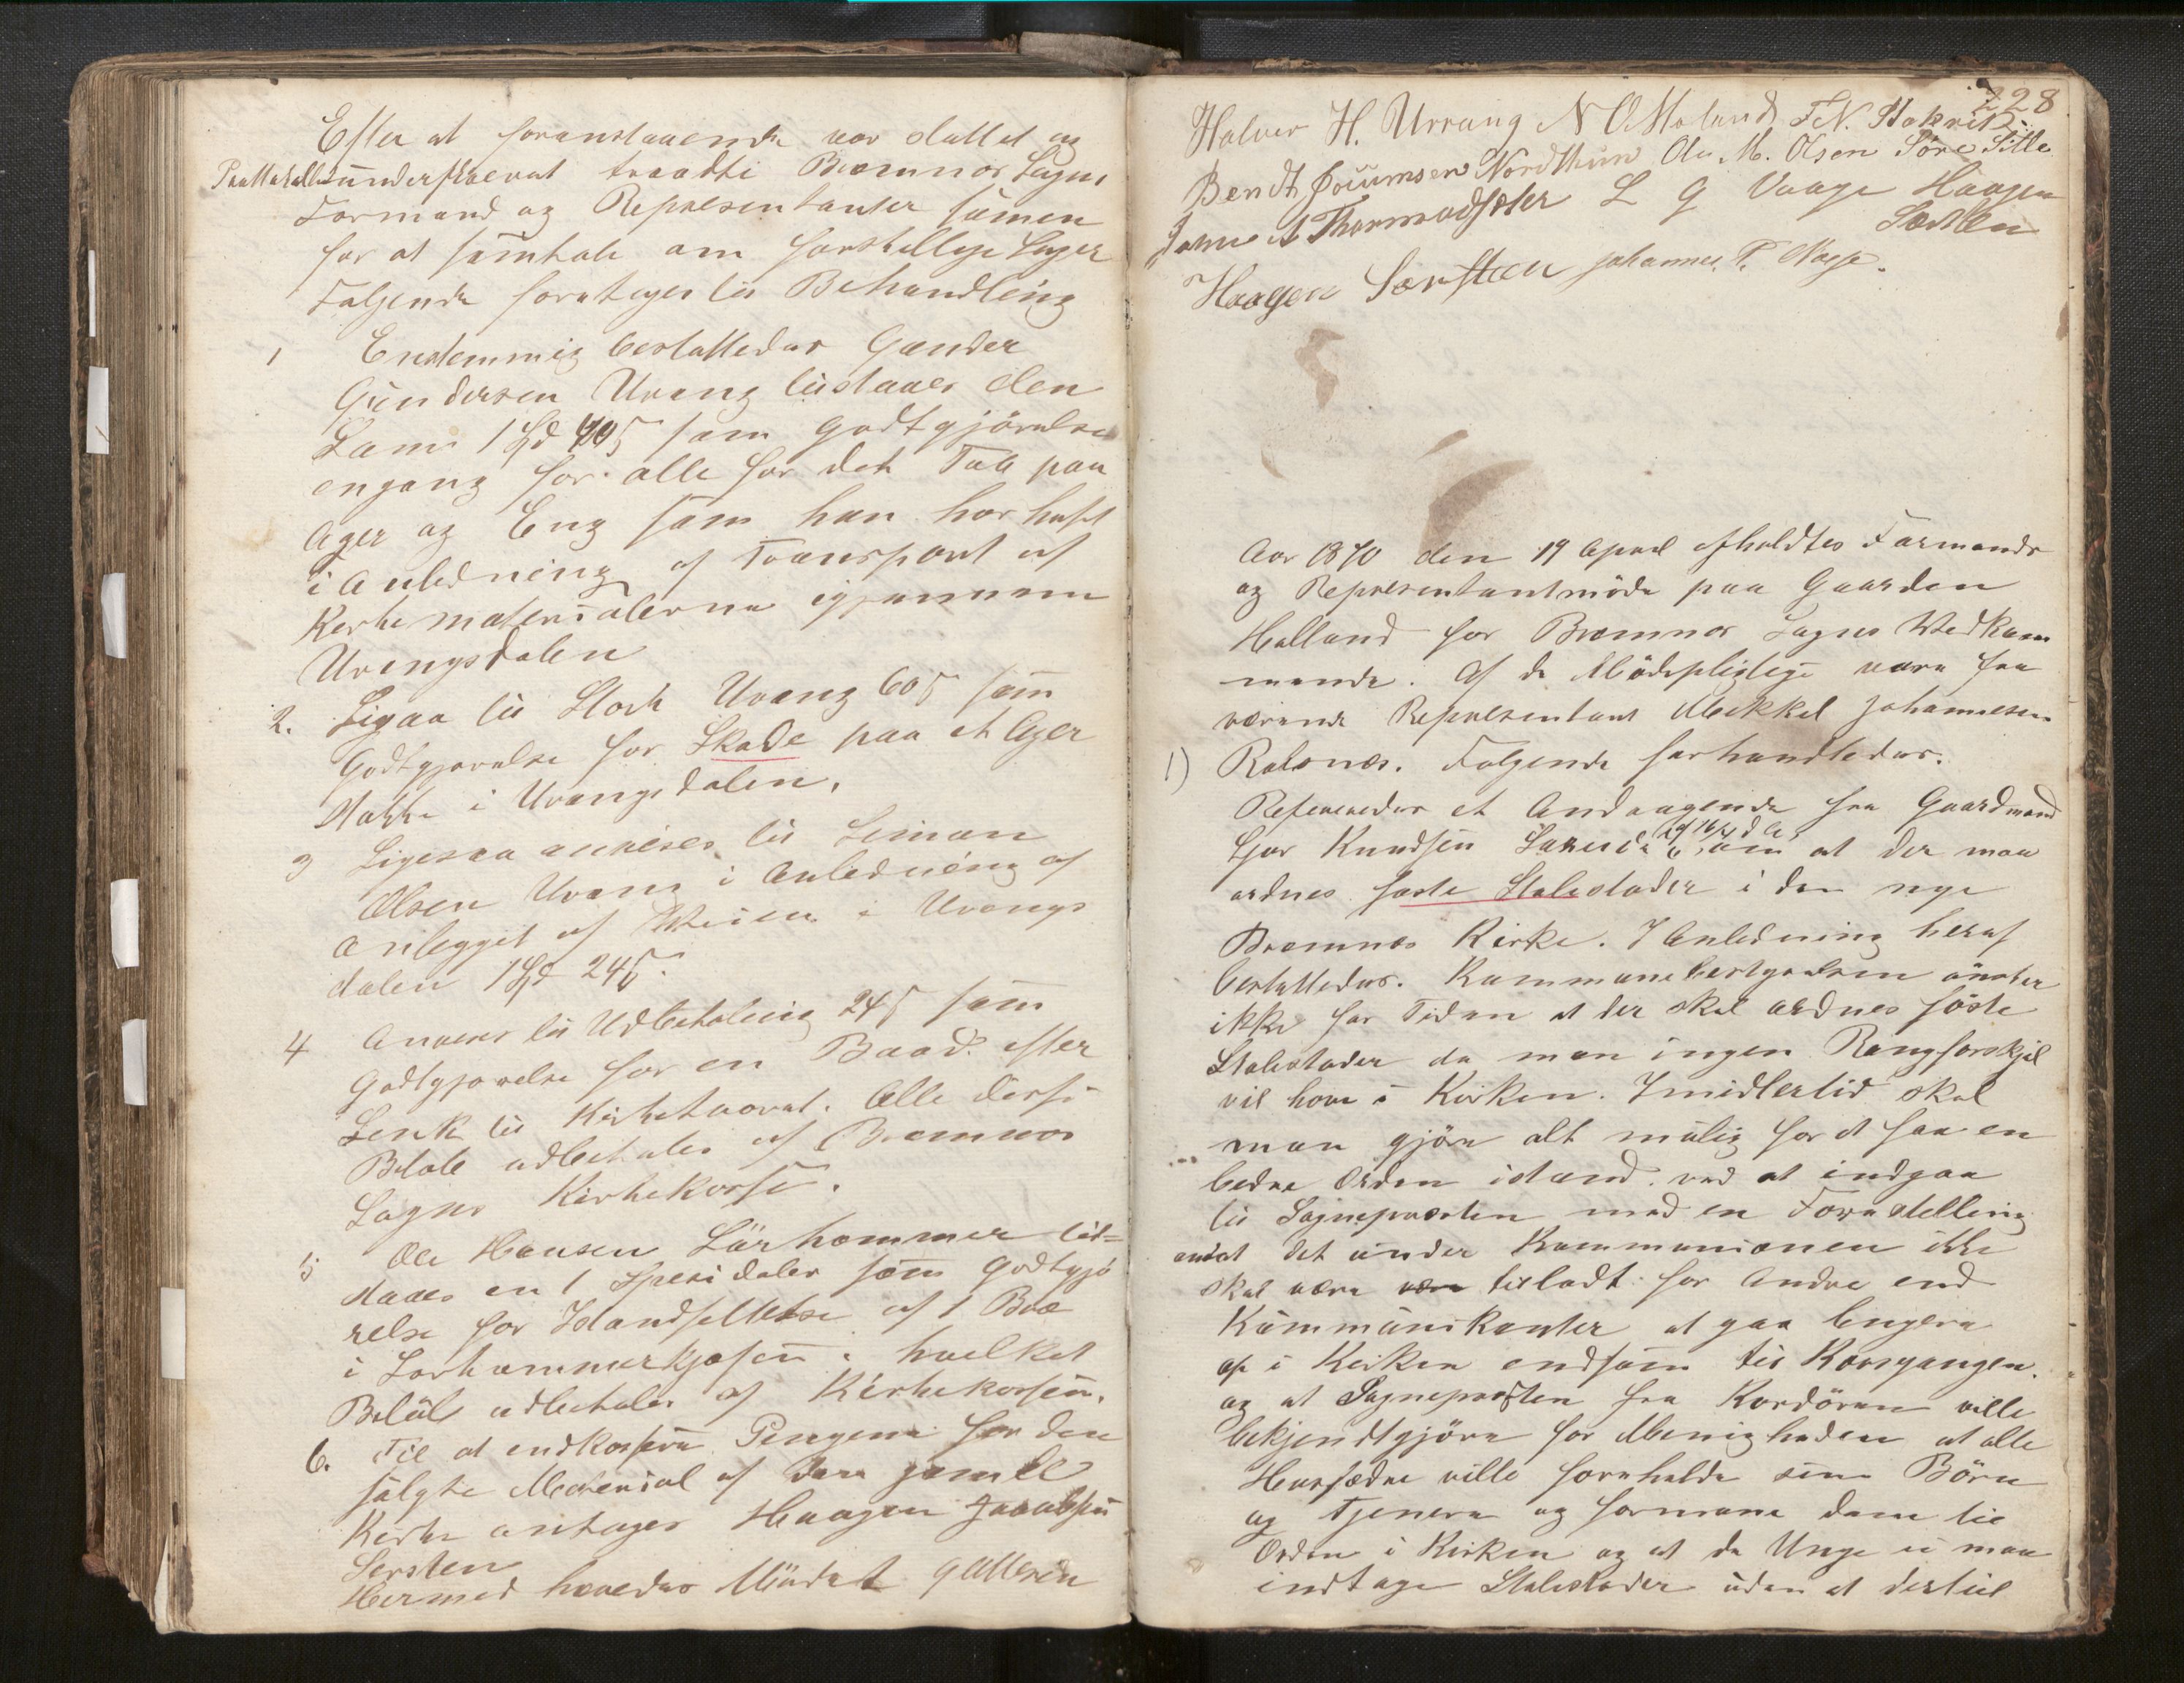 Efter at foranstaaende var sluttet og
Protokollen underskrevet traadte Bremnes Sogns
Formænd og Representanter sammen
for at samtale om forskellige Sager
Følgende foretages til Behandling
1 Enstemmig besluttedes Gunder
Gundersen Urang tilstaaes den
Sum 1 Spd 40 s som godtgjörelse
engang for alle for det Tab paa
Ager og Eng som han har havt
i Anledning af Transport af
Kerkematerialerne igjennem
Urangsdalen
2. Ligesaa til Urang 60 s som
Godtgjörelse for Skade paa et Ager
stökke i Urangsdalen.
3 Ligesaa anvises til Simon
Olsen Urang i Anledning af
anlegget af Veien i Urangs
dalen 1 Spd 24 s.
4 Anvises til Udbetaling 24 s som
Godtgjörelse for en Baad efter
til Kirketaarnet. Alle disse
Belöb udbetales af Bremnes
Sogns Kirkekasse.
5 Ole Hansen Lörhammer til=
staaes en 1 Spesidaler som godtgjö
relse for Istandsettelse af 1 Bro
i Lorhammerkjosen, hvelket
Belöb udbetales af Kirkekassen.
6. Til at indkassere Pengene for den
solgte Material af den gamle
Kirke antages Haagen Jacobsen
Sersten
Hermed hævedes Mödet
228
Halvor H. Urrang N O Moland T. N. Stokvik
Bendt Goumsen Nordthun Ole M. Olsen Töre Sille
Johannes A Thormodsæter L G Vaage Haagen
Særsten
Haagen Særsten Johannes P. Hage.
Aar 1870 den 19 April afholdtes Formands
og Representantmöde paa Gaarden
Halland for Bremnes Sogns Vedkom
mende. Af de Mödepligtige vare fra
værende Representant Mikkel Johannesen
1) Rolsnes. Følgende forhandledes.
Refereredes et Andragende fra Gaardmand
Gjer Knudsen Særvold af 16/4 d A om at der maa
ordnes faste Stolestader i den nye
Bremnes Kirke. I Anledning heraf
besluttedes. Kommunebestyrelsen önsker
ikke for Tiden at der skal ordnes faste
Stolestader da man ingen Rangforskjel
vil have i Kirken. Imidlertid skal
man gjöre alt mulig for at faa en
bedre Orden istand ved at indgaa
til Sognepræsten med en Forestelling
andat det under Kommunionen ikke
skal være tilladt for Andre end
Kommunikanter at gaa lengere
op i Kirken endsom til Korsgangen.
og at Sognepræsten fra Kordören ville
bekjendtgjöre for Menigheden at alle
Husfædre ville foreholde sine Börn
og Tjenere og formane dem til
Orden i Kirken og at de Unge ei maa
indtage Stolestader uden at dertil